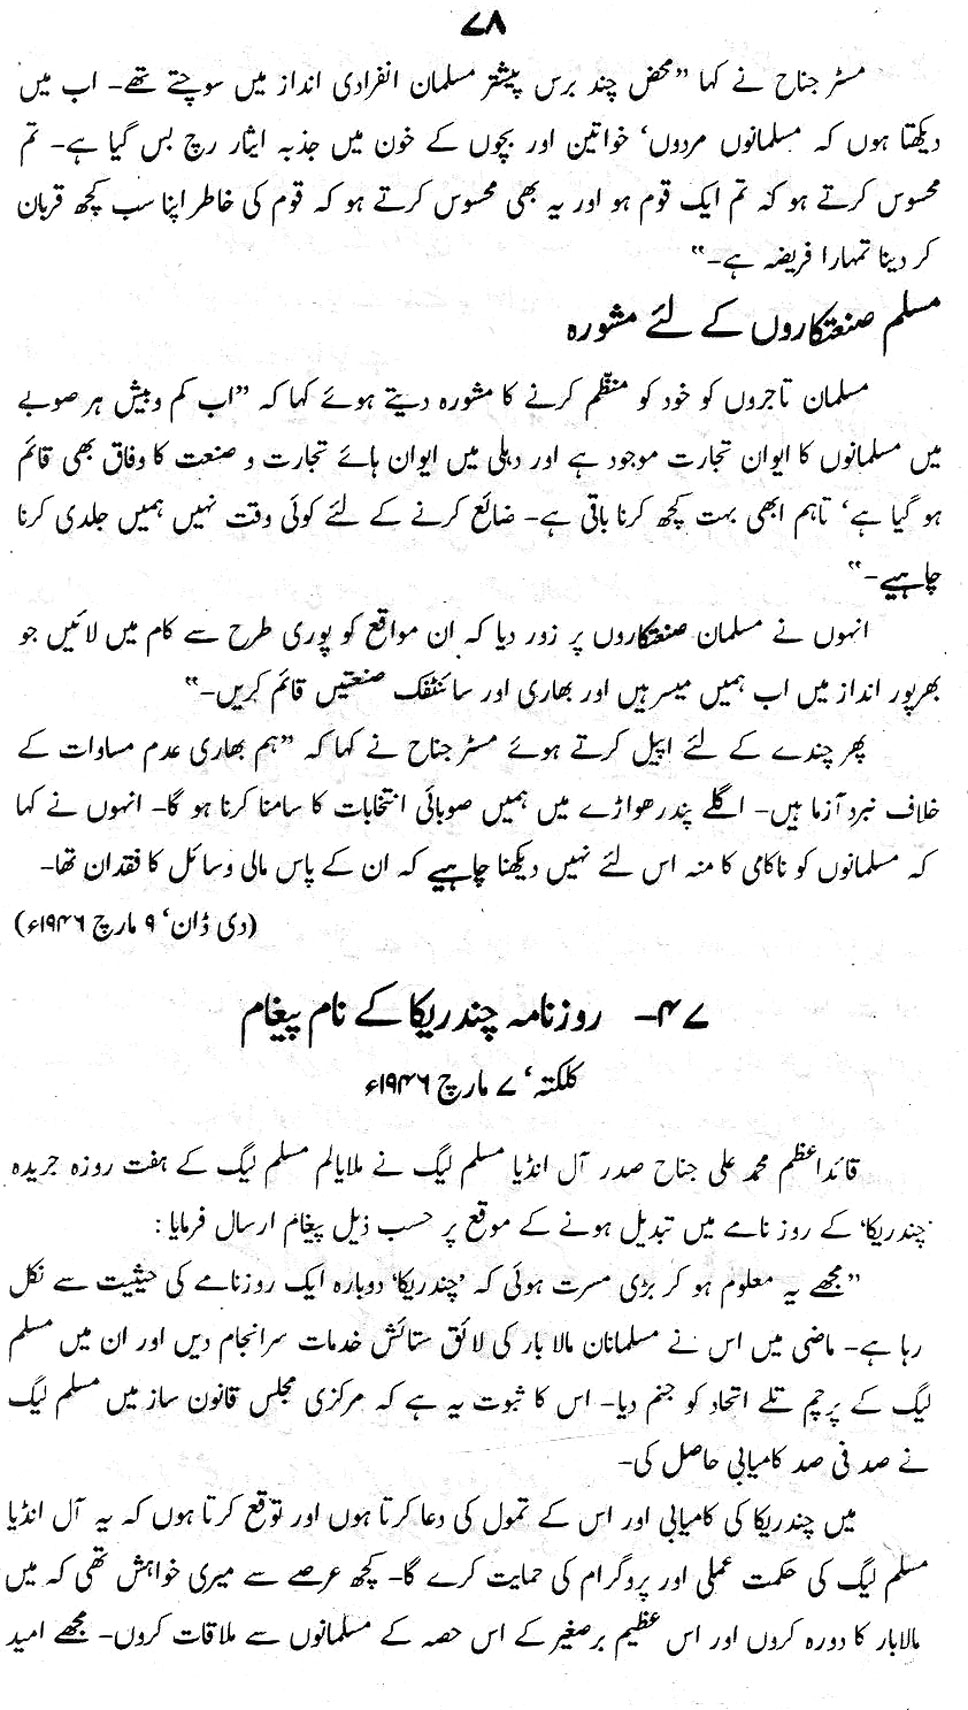 ۷۸
مسٹر جناح نے کہا ”محض چند برس پیشتر مسلمان انفرادی انداز میں سوچتے تھے۔ اب میں
دیکھتا ہوں کہ مسلمانوں مردوں‘ خواتین اور بچوں کے خون میں جذبہ ایثار رچ بس گیا ہے۔ تم
محسوس کرتے ہو کہ تم ایک قوم ہو اور یہ بھی محسوس کرتے ہو کہ قوم کی خاطر اپنا سب کچھ قربان
کر دینا تمہارا فریضہ ہے۔“
مسلم صنعتکاروں کے لئے مشورہ
مسلمان تاجروں کو خود کو منظّم کرنے کا مشورہ دیتے ہوئے کہا کہ ”اب کم و بیش ہر صوبے
میں مسلمانوں کا ایوان تجارت موجود ہے اور دہلی میں ایوان ہائے تجارت و صنعت کا وفاق بھی قائم
ہو گیا ہے‘ تاہم ابھی بہت کچھ کرنا باقی ہے۔ ضائع کرنے کے لئے کوئی وقت نہیں ہمیں جلدی کرنا
چاہیے۔“
انہوں نے مسلمان صنعتکاروں پر زور دیا کہ ان مواقع کو پوری طرح سے کام میں لائیں جو
بھرپور انداز میں اب ہمیں میسر ہیں اور بھاری اور سائنٹفک صنعتیں قائم کریں۔“
پھر چندے کے لئے اپیل کرتے ہوئے مسٹر جناح نے کہا کہ ”ہم بھاری عدم مساوات کے
خلاف نبرد آزما ہیں۔ اگلے پندرھواڑے میں ہمیں صوبائی انتخابات کا سامنا کرنا ہو گا۔ انہوں نے کہا
کہ مسلمانوں کو ناکامی کا منہ اس لئے نہیں دیکھنا چاہیے کہ ان کے پاس مالی وسائل کا فقدان تھا۔
(دی ڈان‘ ۹ مارچ ۱۹۴۶ء)
۴۷۔ روزنامہ چندریکا کے نام پیغام
کلکتہ‘ ۷ مارچ ۱۹۴۶ء
قائداعظم محمد علی جناح صدر آل انڈیا مسلم لیگ نے ملایالم مسلم لیگ کے ہفت روزہ جریدہ
’چندریکا‘ کے روز نامے میں تبدیل ہونے کے موقع پر حسب ذیل پیغام ارسال فرمایا:
”مجھے یہ معلوم ہو کر بڑی مسرت ہوئی کہ ’چندریکا‘ دوبارہ ایک روزنامے کی حیثیت سے نکل
رہا ہے۔ ماضی میں اس نے مسلمانان مالا بار کی لائق ستائش خدمات سرانجام دیں اور ان میں مسلم
لیگ کے پرچم تلے اتحاد کو جنم دیا۔ اس کا ثبوت یہ ہے کہ مرکزی مجلس قانون ساز میں مسلم لیگ
نے صد فی صد کامیابی حاصل کی۔
میں چندریکا کی کامیابی اور اس کے تمول کی دعا کرتا ہوں اور توقع کرتا ہوں کہ یہ آل انڈیا
مسلم لیگ کی حکمت عملی اور پروگرام کی حمایت کرے گا۔ کچھ عرصے سے میری خواہش تھی کہ میں
مالابار کا دورہ کروں اور اس عظیم برصغیر کے اس حصہ کے مسلمانوں سے ملاقات کروں۔ مجھے امید